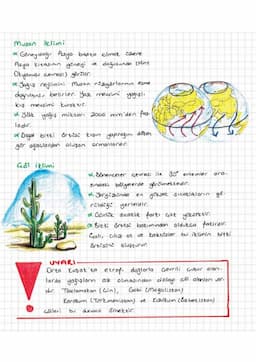 Muson İklimi
* Güneydoğu Asya başta olmak üzere
Asya kıtasının güneyi ve doğusunda (Hint
Okyanusu çevresi) görülür.
* Yağış rejimini Muson rüzgarlarının esme
doğrultusu belirler. Yaz mevsimi yağışlı
kış mevsimi kuraktır.
* Yıllık yağış miktarı 2000 mm'den faz-
ladır.
* Doğal bitki örtüsü kışın yaprağını döken
gür ağaçlardan oluşan ormanlardır.
Çöl İklimi
* Dönenceler çevresi ile 30° enlemler ara-
sındaki bölgelerde görülmektedir.
* Yeryüzünde en yüksek sıcaklıkların gö-
rüldüğü yerlerdir.
* Günlük sıcaklık farkı çok yüksektir.
* Bitki örtüsü bakımından oldukça fakirdir.
Çalı, cılız ot ve kaktüsler bu iklimin bitki
örtüsünü oluşturur.
UYARI
Orta kuşakta etrafı dağlarla çevrili çukur alan-
larda yağışların az olmasından dolayı çöl alanları var-
dır. Taklamakan (Çin), Gobi (Moğolistan)
Karakum (Türkmenistan) ve Kızılkum (Özbekistan)
çölleri bu duruma örnektir.